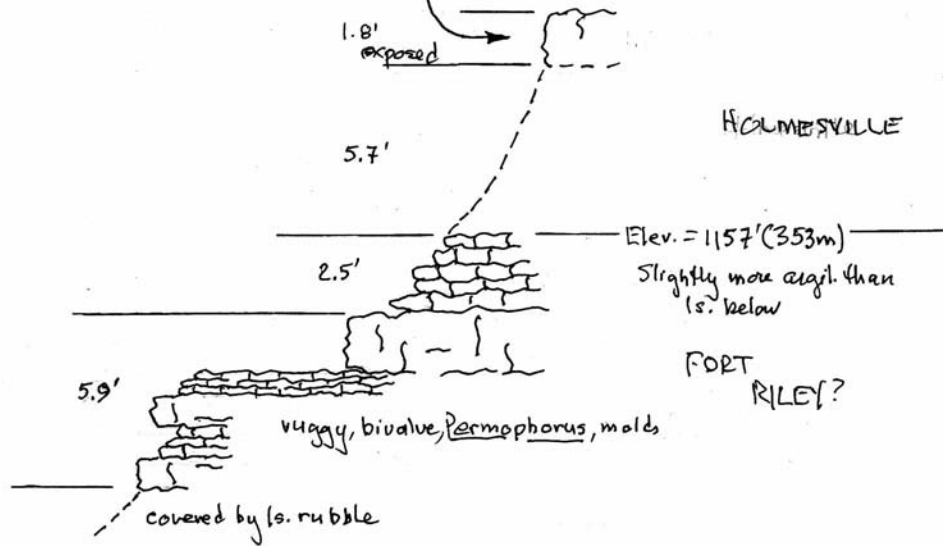 1.8'
exposed
HOLMESVILLE
5.7'
Elev. = 1157' (353m)
2.5'
Slightly more argil. than
ls. below
FORT
RILEY?
5.9'
vuggy, bivalve, Permophorus, molds
covered by ls. rubble